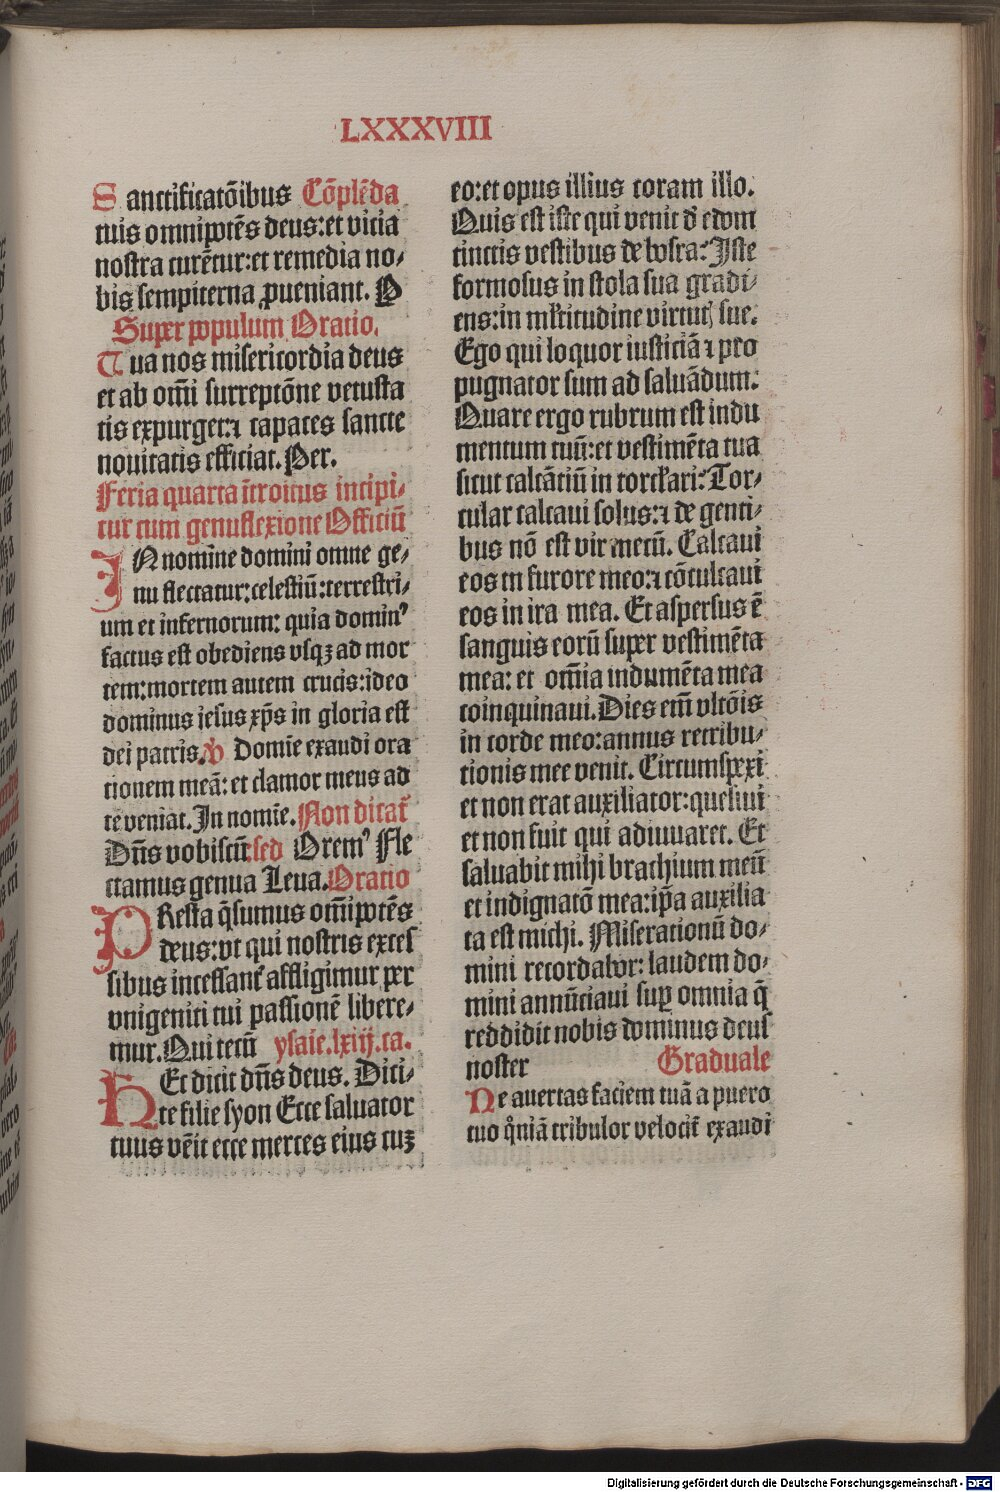 LXXXVIII
Sanctificatōibus Cōplēda
tuis omnipotēs deus: et vicia
nostra curētur: et remedia no⸗
bis sempiterna ꝓueniant. P
Super populum Oratio.
Tua nos misericordia deus
et ab om̄i surreptōne vetusta
tis expurget: ⁊ capaces sancte
nouitatis efficiat. Per.
Feria quarta ītroitus incipi⸗
tur cum genuflexione Officiū
IN nomīne domini omne ge⸗
nu flectatur: celestiū: terrestri⸗
um et infernorum: quia dominꝰ
factus est obediens vsqꝫ ad mor
tem: mortem autem crucis: ideo
dominus iesus xp̄s in gloria est
dei patris. ℣ Domīe exaudi ora
tionem meā: et clamor meus ad
te veniat. In nomīe. Non dicat̄
Dn̄s vobiscū: sed Oremꝰ Fle
ctamus genua Leua. Oratio
PResta q̄sumus om̄ipotēs
deus: vt qui nostris exces
sibus incessant̄ affligimur per
vnigeniti tui passionē libere⸗
mur. Qui tecū ysaie. lxiij. ca.
HEt dicit dn̄s deus. Dici⸗
te filie syon Ecce saluator
tuus vēit ecce merces eius cuꝫ
eo: et opus illius coram illo.
Quis est iste qui venit d̄ edom
tinctis vestibus de bosra? Iste
formosus in stola sua gradi⸗
ens: in ml̄titudine virtutꝭ sue.
Ego qui loquor iusticiā ⁊ pro
pugnator sum ad saluādum:
Quare ergo rubrum est indu
mentum tuū: et vestimēta tua
sicut calcātiū in torcl̄ari? Tor⸗
cular calcaui solus: ⁊ de genti⸗
bus nō est vir mecū. Calcaui
eos in furore meo: ⁊ cōculcaui
eos in ira mea. Et aspersus ē
sanguis eorū super vestimēta
mea: et om̄ia indumēta mea
coinquinaui. Dies em̄ vltōis
in corde meo: annus retribu⸗
tionis mee venit. Circumspexi
et non erat auxiliator: quesiui
et non fuit qui adiuuaret. Et
saluabit mihi brachium meū
et indignatō mea: ip̄a auxilia
ta est michi. Miserationū do⸗
mini recordabor: laudem do⸗
mini annūciaui sup̄ omnia q̄
reddidit nobis dominus deus
noster Graduale
Ne auertas faciem tuā a puero
tuo qm̄iā tribulor velocit̄ exaudi
Digitalisierung gefördert durch die Deutsche Forschungsgemeinschaft - DFG